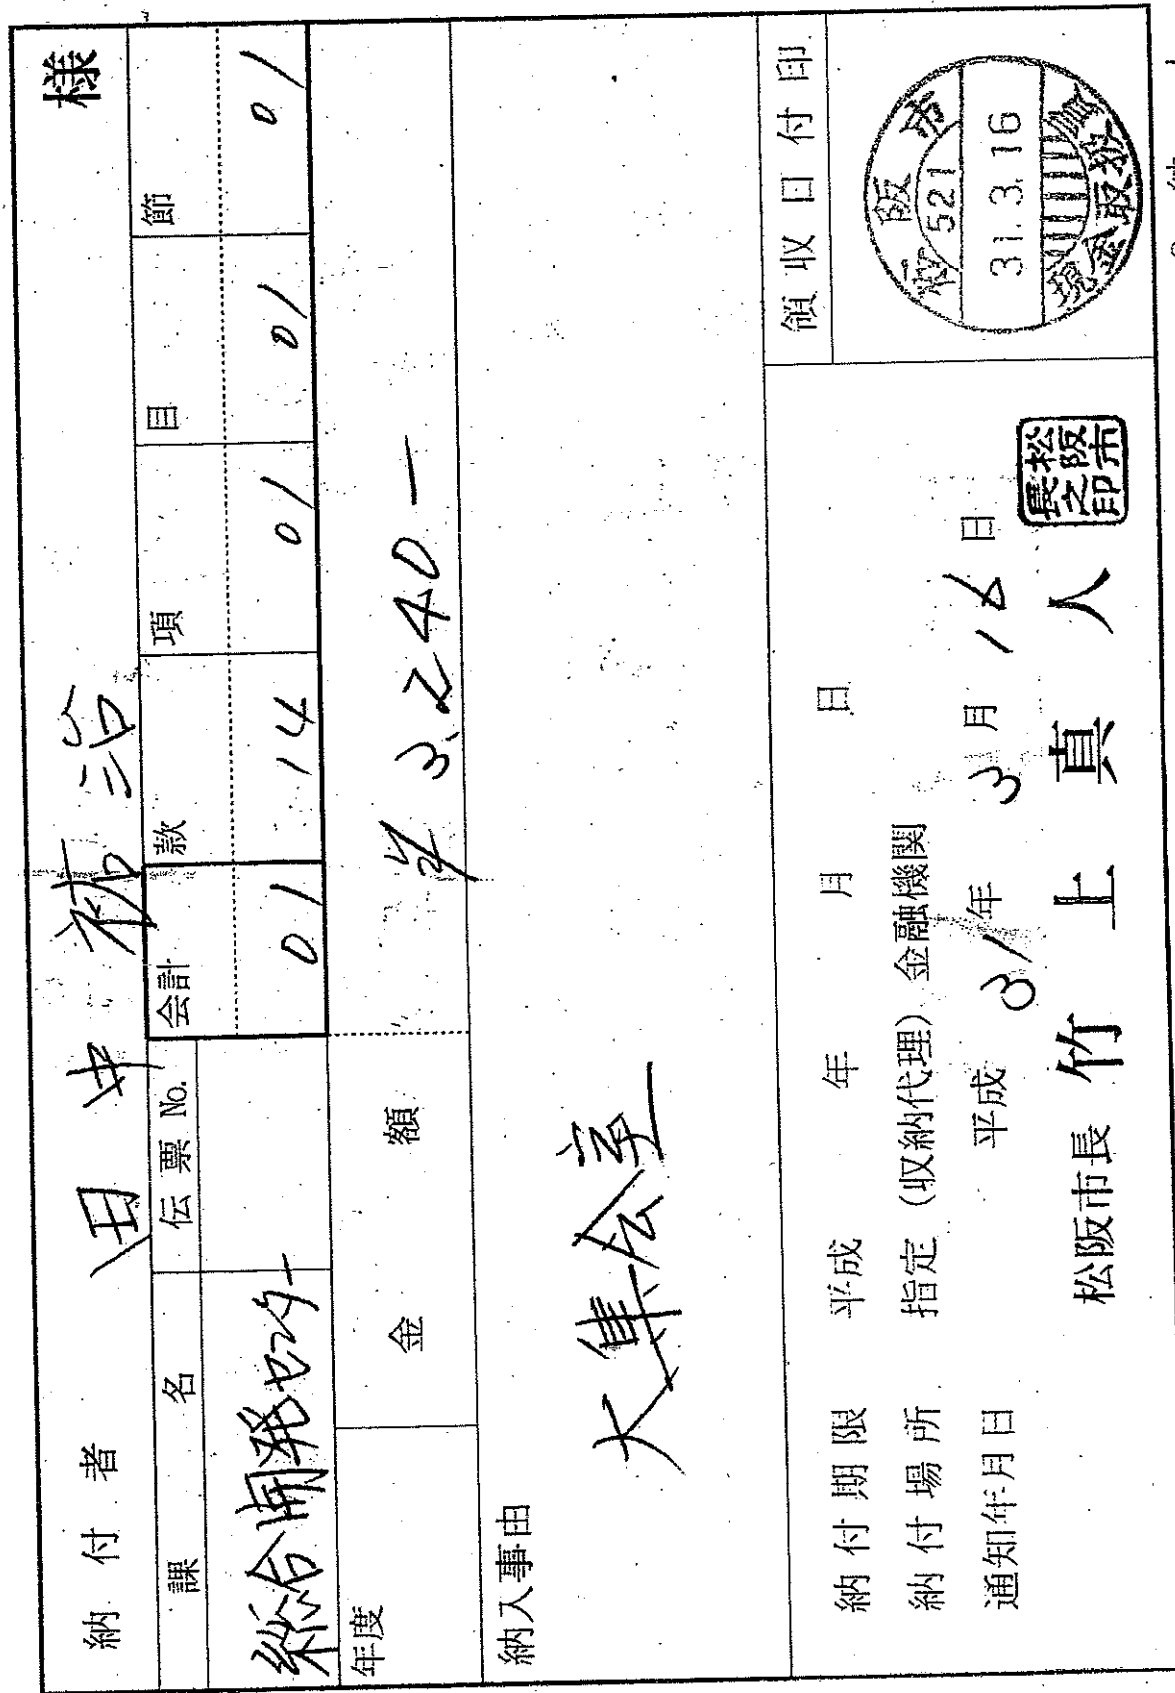 納付者 田中 祐治 様
課名 伝票No. 会計 款 項 目 節
総合開発センター 01 14 01 01 01
年度 金額 ¥3,240-
納入事由
大集会室
領収日付印
納付期限 平成 年 月 日
納付場所 指定(収納代理)金融機関
通知年月日 平成 31年 3月 16日
松阪市長 竹上真人
松阪市長之印
松阪市
521
31.3.16
現金取扱員